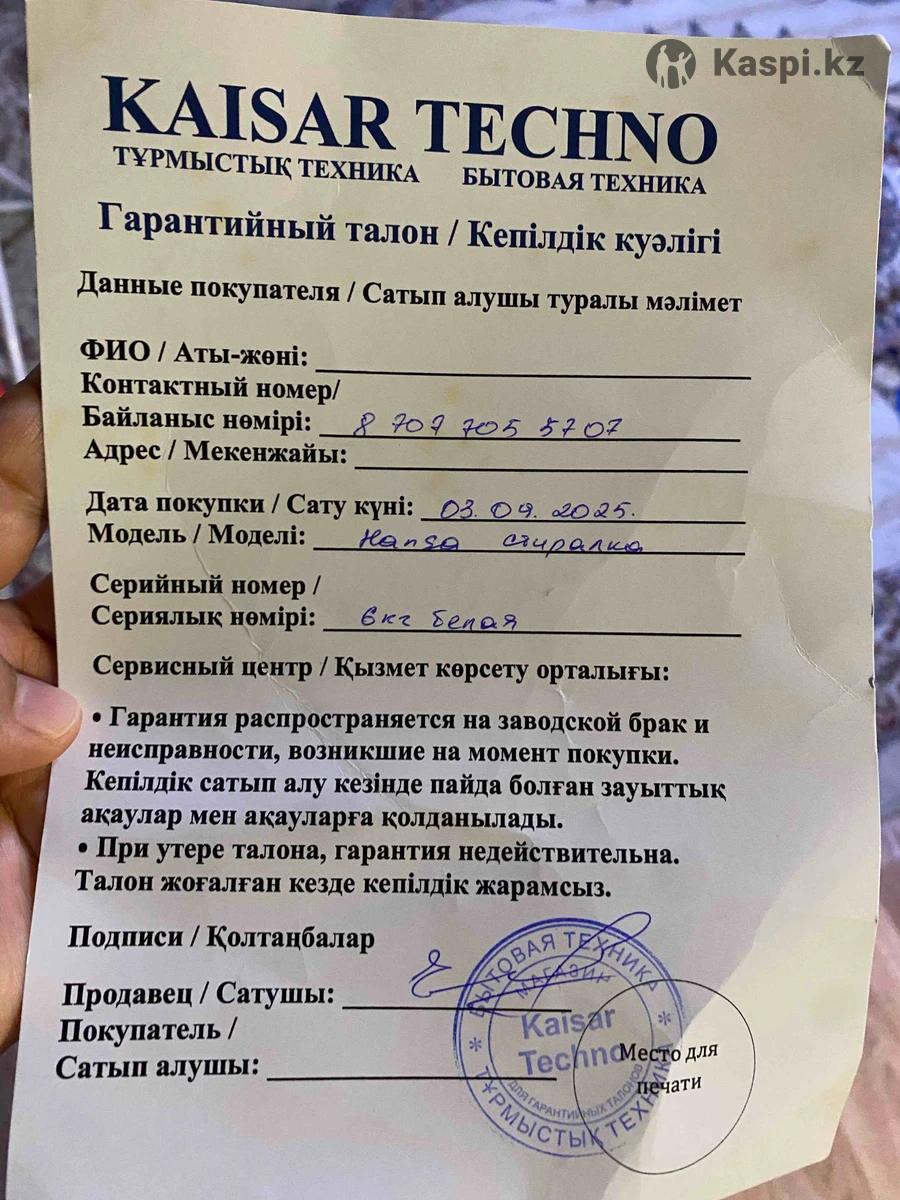 Kaspi.kz
KAISAR TECHNO
ТҰРМЫСТЫҚ ТЕХНИКА БЫТОВАЯ ТЕХНИКА
Гарантийный талон / Кепілдік куәлігі
Данные покупателя / Сатып алушы туралы мәлімет
ФИО / Аты-жөні:
Контактный номер/
Байланыс нөмірі: 8 707 705 5707
Адрес / Мекенжайы:
Дата покупки / Сату күні: 03.09.2025.
Модель / Моделі: Hansa стиралка
Серийный номер /
Сериялық нөмірі: 6кг белая
Сервисный центр / Қызмет көрсету орталығы:
• Гарантия распространяется на заводской брак и
неисправности, возникшие на момент покупки.
Кепілдік сатып алу кезінде пайда болған зауыттық
ақаулар мен ақауларға қолданылады.
• При утере талона, гарантия недействительна.
Талон жоғалған кезде кепілдік жарамсыз.
Подписи / Қолтаңбалар
Продавец / Сатушы:
Покупатель /
Сатып алушы:
БЫТОВАЯ ТЕХНИКА
МАГАЗИН
Kaisar
Techno
ДЛЯ ГАРАНТИЙНЫХ ТАЛОНОВ
ТҰРМЫСТЫҚ ТЕХНИКА
Место для
печати